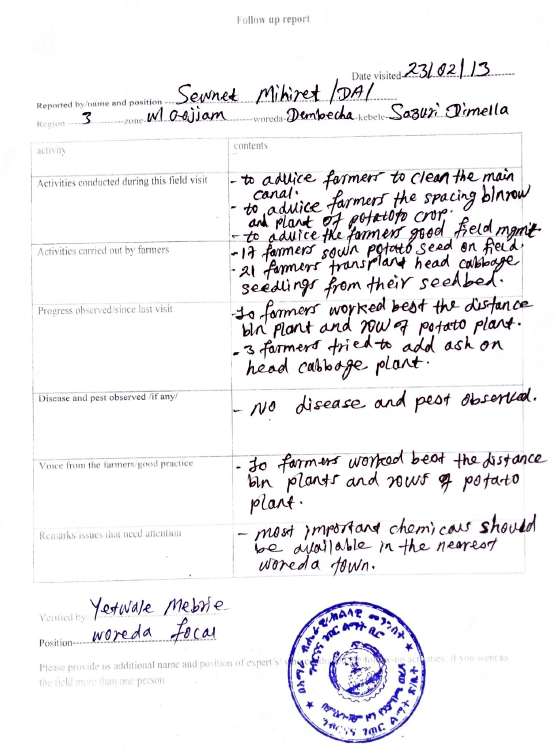 Follow up report
Date visited 23/02/13
Reported by/name and position Sewnet Mihiret /DA/
Region 3 zone w/Gojjam woreda Dembecha kebele Sazuri Dimella
activity
contents
Activities conducted during this field visit
- to advice farmers to clean the main
canal.
- to advice farmers the spacing b/n row
and plant of potatoto crop.
- to advice the farmers good field mgmt.
Activities carried out by farmers
- 17 farmers sown potato seed on field.
- 21 farmers transplant head cabbage
seedlings from their seedbed.
Progress observed/since last visit
- 10 farmers worked best the distance
b/n plant and row of potato plant.
- 3 farmers tried to add ash on
head cabbage plant.
Disease and pest observed /if any/
- No disease and pest observed.
Voice from the farmers/good practice
- 10 farmers worked best the distance
b/n plants and rows of potato
plant.
Remarks issues that need attention
- most important chemicals should
be available in the nearest
woreda town.
Verified by Yetwale Mebrie
Position woreda focal
Please provide us additional name and position of expert's if you went to
the field more than one person